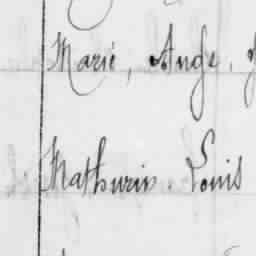 Marie, Ange,
Mathurin. Louis